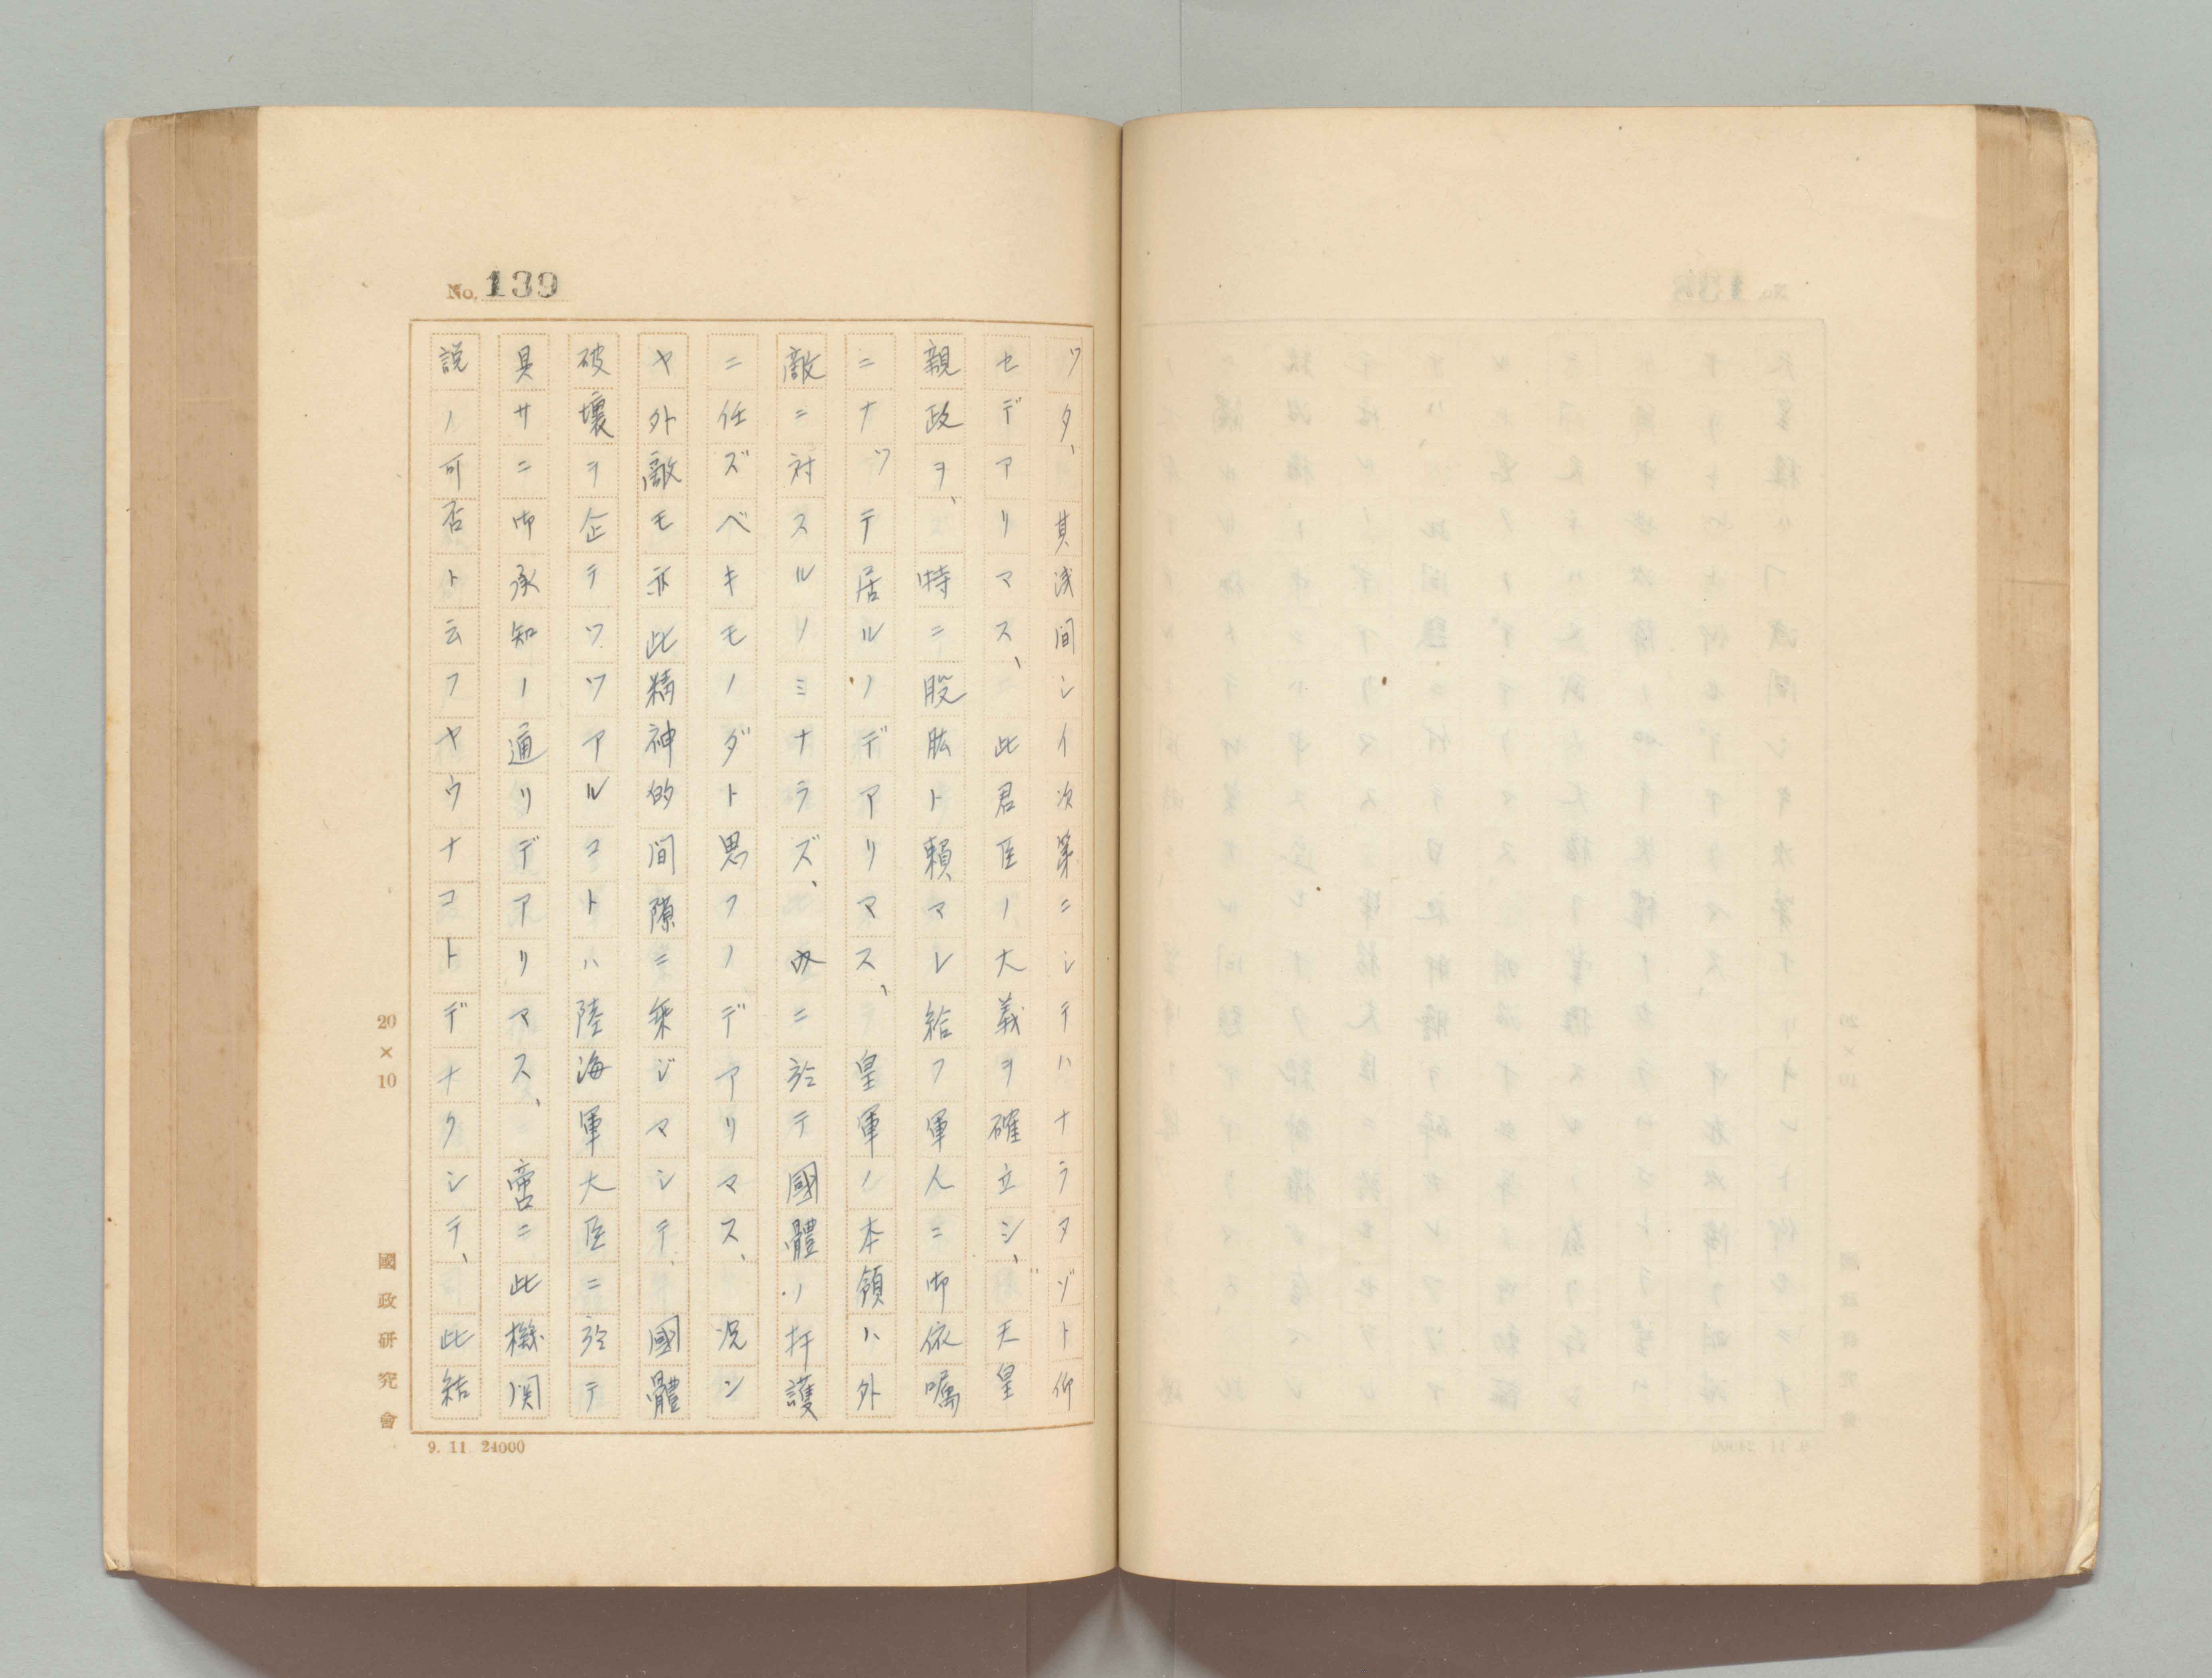 No. 139
ツタ、其浅間シイ次第ニシテハナラヌゾト仰
セデアリマス、此君臣ノ大義ヲ確立シ、天皇
親政ヲ、特ニ股肱ト頼マレ給フ軍人ニ御依嘱
ニナツテ居ルノデアリマス、皇軍ノ本領ハ外
敵ニ対スルノミナラズ、内ニ於テ國體ノ扞護
ニ任ズベキモノダト思フノデアリマス、况ン
ヤ外敵モ亦此精神的間隙ニ乗ジマシテ、國體
破壊ヲ企テツツアルコトハ陸海軍大臣ニ於テ
具サニ御承知ノ通リデアリマス、啻ニ此機関
説ノ可否ト云フヤウナコトデナクシテ、此結
20×10
國政研究會
9. 11 24000